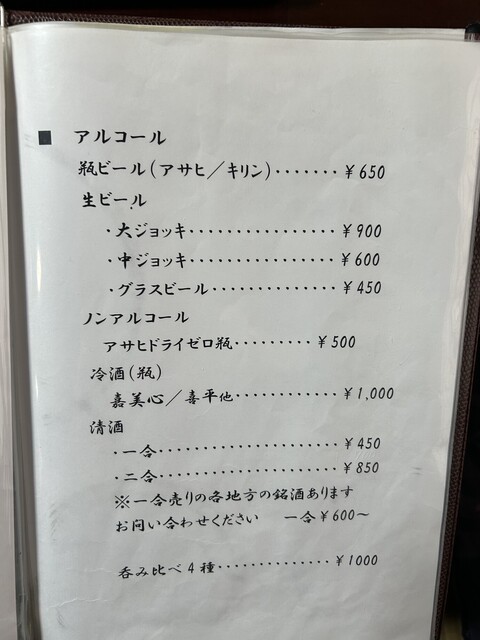 ■ アルコール
瓶ビール(アサヒ／キリン)・・・・・・・￥650
生ビール
・大ジョッキ・・・・・・・・・・・・・・・・￥900
・中ジョッキ・・・・・・・・・・・・・・・・￥600
・グラスビール・・・・・・・・・・・・・・￥450
ノンアルコール
アサヒドライゼロ瓶・・・・・・・・・￥500
冷酒(瓶)
嘉美心／喜平他・・・・・・・・・・・・￥1,000
清酒
・一合・・・・・・・・・・・・・・・・・・・・￥450
・二合・・・・・・・・・・・・・・・・・・・・￥850
※一合売りの各地方の銘酒あります
お問い合わせください 一合￥600～
呑み比べ4種・・・・・・・・・・・・・￥1000